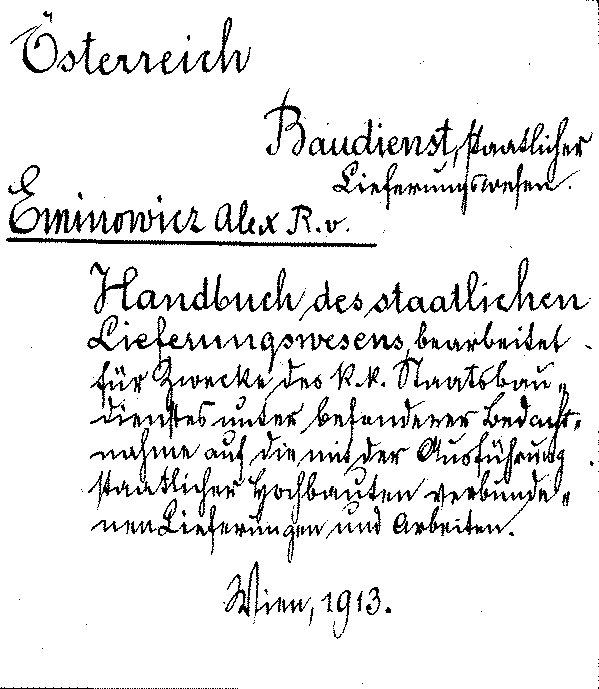 Österreich
Baudienst, staatlicher
Lieferungswesen.
Eminowicz Alex R. v.
Handbuch des staatlichen
Lieferungswesens, bearbeitet
für Zwecke des k. k. Staatsbau-
dienstes unter besonderer Bedacht-
nahme auf die mit der Ausführung
staatlicher Hochbauten verbunde-
nen Lieferungen und Arbeiten.
Wien, 1913.